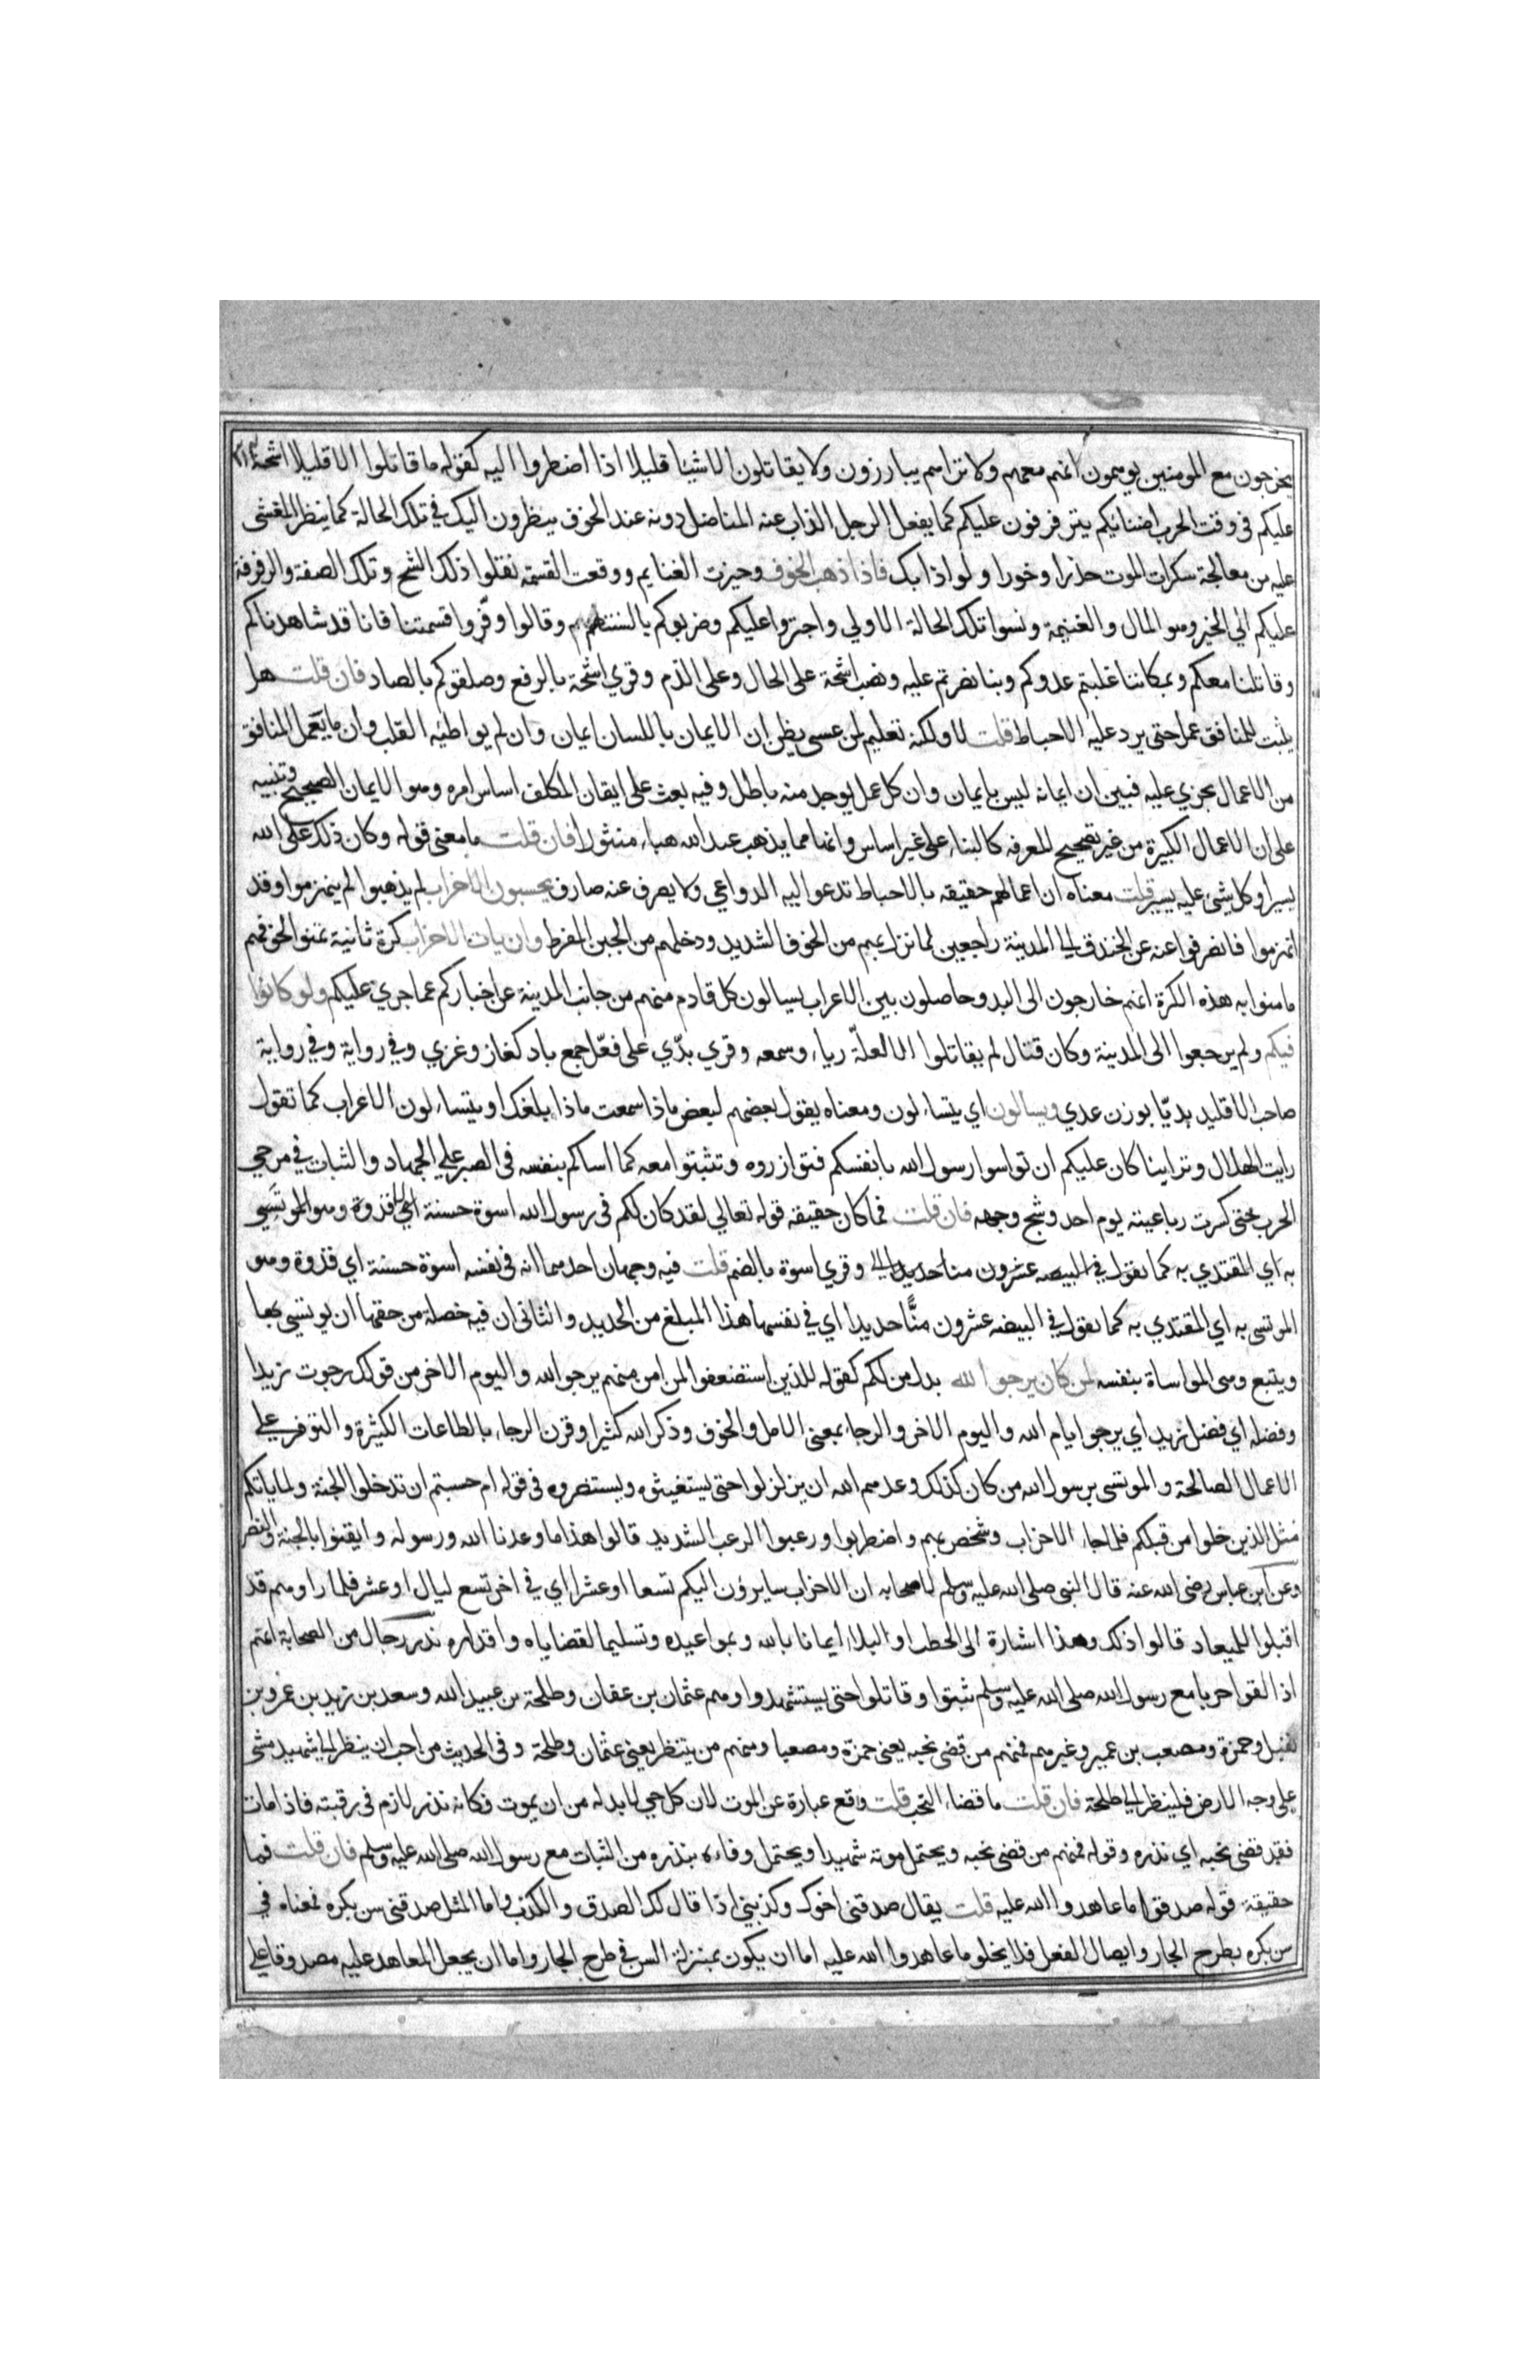 يخرجون مع المومنين يوهمون انهم معهم ولا تراهم يبارزون ولا يقاتلون الا شيئا قليلا اذا اضطروا اليه كقوله ما قاتلوا الا قليلا اشحة
عليكم في وقت الحرب اضنائكم يترفرفون عليكم كما يفعل الرجل الذاب عنه المناضل دونه عند الخوف ينظرون اليك في تلك الحالة كما ينظر المغشى
عليه من معالجة سكرات الموت حذرا وخورا ولواذا بك فاذا ذهب الخوف وحيزت الغنايم ووقعت القسمة نقلوا ذلك الشح وتلك الصفة والرفرفة
عليكم الي الخير وهو المال والغنيمة ونسوا تلك الحالة الاولي واجتروا عليكم وضربوكم بالسنتهم وقالوا وفّروا قسمتنا فانا قد شاهدناكم
وقاتلنا معكم وبمكاننا غلبتم عدوكم وبنا نصرتم عليه ونصب اشحة على الحال وعلى الذم وقري اشحة بالرفع وصلقوكم بالصاد فان قلت هل
يثبت للمنافق عمل حتى يرد عليه الاحباط قلت لا ولكنه تعليم لمن عسى يظن ان الايمان باللسان ايمان وان لم يواطئه القلب وان ما يعمل المنافق
من الاعمال يجزي عليه فبين ان ايمانه ليس بايمان وان كل عمل يوجد منه باطل وفيه بعث على ايقان المكلف اساس امره وهو الايمان الصحيح وتنبيه
على ان الاعمال الكبيرة من غير تصحيح المعرفه كالبناء على غير اساس وانها مما يذهب عند الله هباء منثورا فان قلت ما معنى قوله وكان ذلك على الله
يسيرا وكل شي عليه يسير قلت معناه ان اعمالهم حقيقه بالاحباط تدعوا اليه الدواعي ولا يصرف عنه صارف يحسبون الاحزاب لم يذهبوا لم ينهزموا وقد
انهزموا فانصرفوا عنه عن الخندق الى المدينة راجعين لما نزل بهم من الخوف الشديد ودخلهم من الجبن المفرط وان يات الاحزاب كرة ثانية تمنوا لخوفهم
ما منوا به هذه الكرة انهم خارجون الى البدو حاصلون بين الاعراب يسالون كل قادم منهم من جانب المدينة عن اخباركم عما جري عليكم ولو كانوا
فيكم ولم يرجعوا الى المدينة وكان قتال لم يقاتلوا الا لعلّة رياء وسمعه وقري بدّي على فعّل جمع باد كغاز وغزي وفي رواية وفي رواية
صاحب الاقليد بديّا بوزن عدي ويسالون اي يتساءلون ومعناه يقول بعضهم لبعض ماذا سمعت ماذا بلغك او يتساءلون الاعراب كما تقول
رايت الهلال وتراينا كان عليكم ان تواسوا رسول الله بانفسكم فتوازروه وتثبتوا معه كما اساكم بنفسه في الصبر علي الجهاد والثبات في مرحي
الحرب حتى كسرت رباعيته يوم احد وشج وجهه فان قلت فما كان حقيقه قوله تعالي لقد كان لكم في رسول الله اسوة حسنة اي قدوة وهو الموتسي
به اي المقتدي به كما تقول في البيضه عشرون منا حديدا اي وقري اسوة بالضم قلت فيه وجهان احدهما انه في نفسه اسوة حسنة اي قدوة وهو
الموتسى به اي المقتدي به كما تقول في البيضه عشرون منًّا حديدا اي في نفسها هذا المبلغ من الحديد والثاني ان فيه خصلة من حقها ان يوتسي بها
ويتبع وهى المواساة بنفسه لمن كان يرجوا الله بدل من لكم كقوله للذين استضعفوا لمن امن منهم يرجو الله واليوم الاخر من قولك رجوت زيدا
وفضله اي فضل زيد اي يرجوا ايام الله واليوم الاخر والرجاء بمعنى الامل والخوف وذكر الله كثيرا وقرن الرجاء بالطاعات الكثيرة والتوفر علي
الاعمال الصالحة والموتسى برسول الله من كان كذلك وعدهم الله ان يزلزلوا حتى يستغيثوه ويستضروه في قوله ام حسبتم ان تدخلوا الجنة ولما ياتكم
مثل الذين خلوا من قبلكم فلما جاء الاحزاب وشخص بهم واضطربوا ورعبوا الرعب الشديد قالوا هذا ما وعدنا الله ورسوله وايقنوا بالجنة والنصر
وعن ابن عباس رضى الله عنه قال النبى صلى الله عليه وسلم لاصحابه ان الاحزاب سايرون اليكم تسعا او عشرا اي في اخر تسع ليال او عشر فلما راوهم قد
اقبلوا للميعاد قالوا ذلك وهذا اشارة الى الخطب او البلاء ايمانا بالله وبمواعيده وتسليما لقضاياه واقداره نذر رجال من الصحابة انهم
اذا لقوا حربا مع رسول الله صلى الله عليه وسلم ثبتوا وقاتلوا حتى يستشهدوا وهم عثمان بن عفان وطلحة بن عبيد الله وسعد بن زيد بن عمرو بن
نفيل وحمزة ومصعب بن عمير وغيرهم فمنهم من قضى نحبه يعنى حمزة ومصعبا ومنهم من ينتظر يعنى عثمان وطلحة وفي الحديث من احب ان ينظر الى شهيد مشى
على وجه الارض فلينظر الي طلحة فان قلت ما قضاء النحب قلت واقع عبارة عن الموت لان كل حي لا بد له من ان يموت فكانه نذر لازم في رقبته فاذا مات
فقد قضى نحبه اي نذره وقوله فمنهم من قضى نحبه ويحتمل موته شهيدا ويحتمل وفاءه بنذره من الثبات مع رسول الله صلى الله عليه وسلم فان قلت فما
حقيقة قوله صدقوا ما عاهدوا الله عليه قلت يقال صدقنى اخوك وكذبني اذا قال لك الصدق والكذب واما المثل صدقنى سن بكره فمعناه في
سن بكره بطرح الجار وايصال الفعل فلا يخلو ما عاهدوا الله عليه اما ان يكون بمنزلة السن في طرح الجار واما ان يجعل المعاهد عليه مصدوقا على